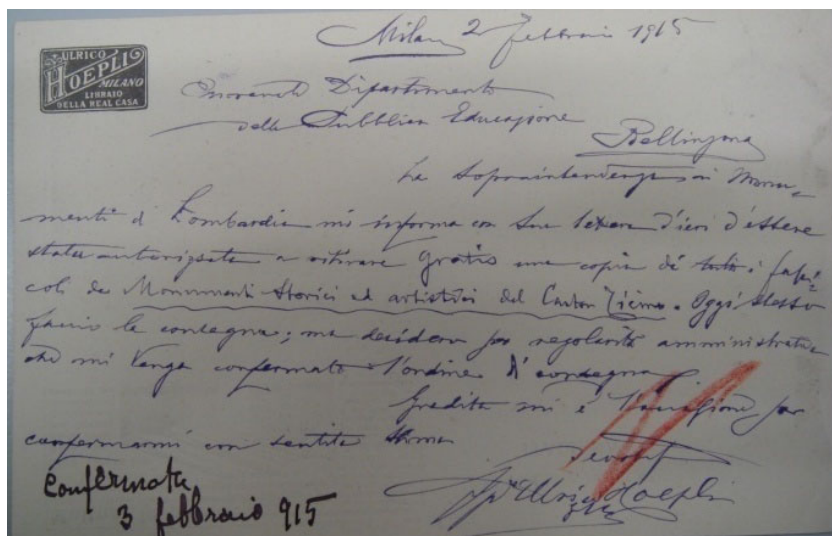 ULRICO
HOEPLI
MILANO
LIBRAIO
DELLA REAL CASA
Milano 2 febbraio 1915
Onorevole Dipartimento
della Pubblica Educazione
Bellinzona
La Sopraintendenza ai Monu-
menti di Lombardia mi informa con sua lettera d'ieri d'essere
stata autorizzata a ritirare gratis una copia di tutti i fasci-
coli de Monumenti storici ed artistici del Canton Ticino. Oggi stesso
faccio la consegna; ma desidero per regolarità amministrativa
che mi venga confermato l'ordine di consegna
Gradita mi è l'occasione per
confermarmi con sentita stima
devot
Ulrico Hoepli
Confermata
3 febbraio 915